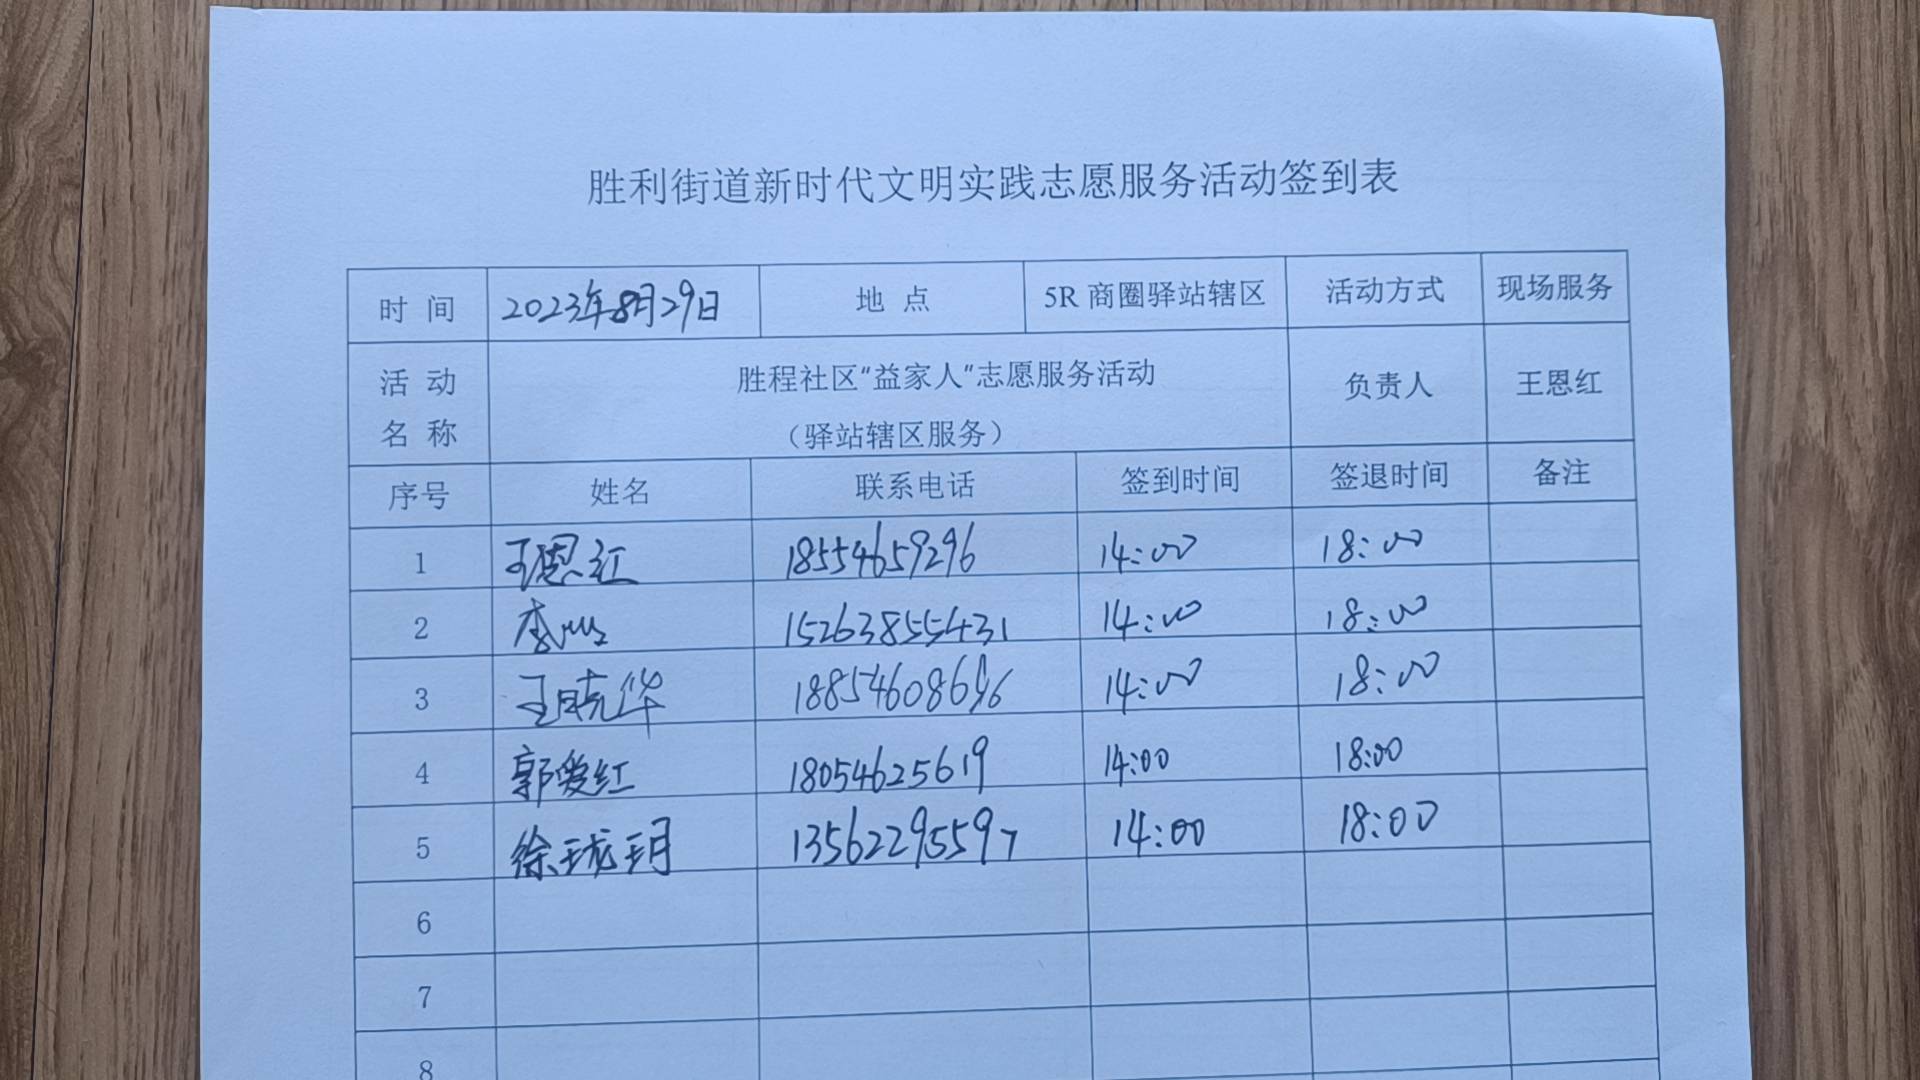 胜利街道新时代文明实践志愿服务活动签到表
时 间 2023年8月29日 地 点 5R 商圈驿站辖区 活动方式 现场服务
活 动 名 称 胜程社区“益家人”志愿服务活动 负责人 王恩红
（驿站辖区服务）
序号 姓名 联系电话 签到时间 签退时间 备注
1 王恩红 18554659296 14:00 18:00
2 15263855431 14:00 18:00
3 王晓华 18854608696 14:00 18:00
4 郭爱红 18054625619 14:00 18:00
5 徐珑玥 13562295597 14:00 18:00
6
7
8